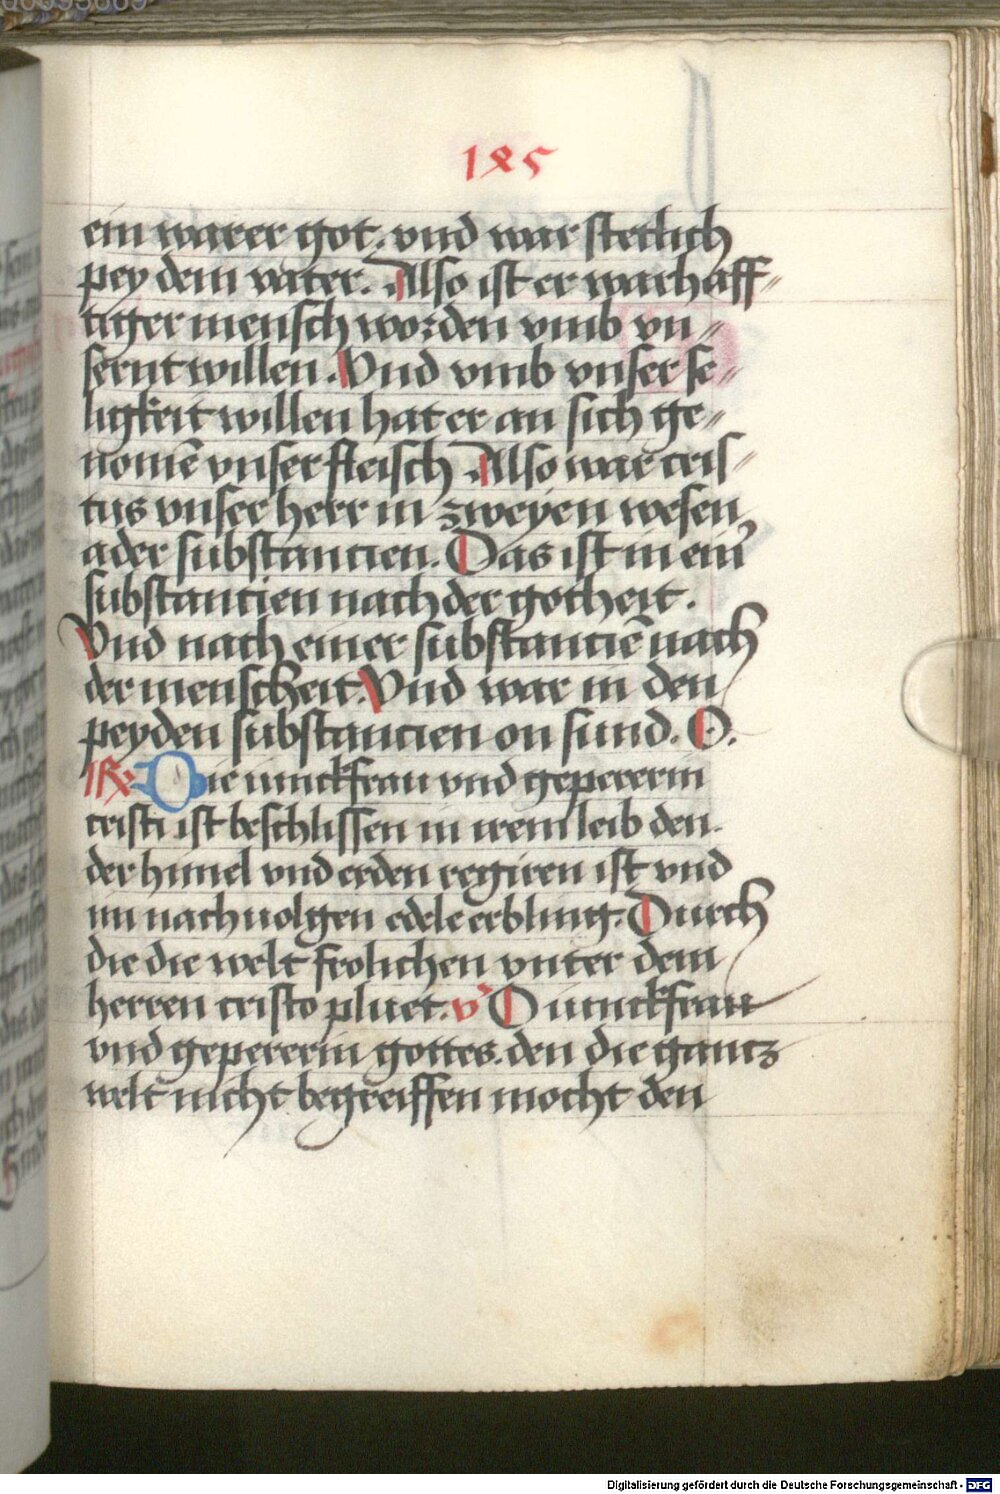 185
ein warer got. vnd war stetlich
pey dem vater. Also ist er warhaff„
tiger mensch worden vmb vn„
sernt willen. Vnd vmb vnser se„
ligkeit willen hat er an sich ge„
nomē vnser fleisch Also was cris„
tus vnser herr in zweyen wesen
ader substancien. Das ist in ein̄
substancien nach der gotheit.
Vnd nach einer substanciē nach
der menscheit. Vnd war in den
peyden substancien on sund. O.
R Die iunckfrau vnd gepererin
cristi ist beschlissen in irem leib den
der himel vnd erden regiren ist vnd
im nachuolgen edele erbling. Durch
die die welt frolichen vnter dem
herren cristo pluet. v O iunckfrau
vnd gepererin gottes. den die gantz
welt nicht begreiffen mocht den
Digitalisierung gefördert durch die Deutsche Forschungsgemeinschaft - DFG